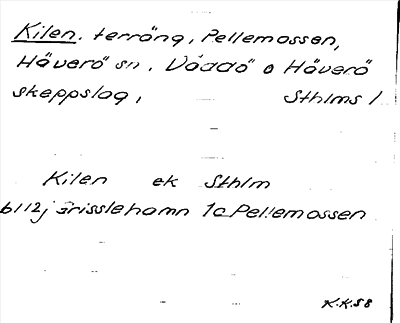 Kilen. terräng, Pellemossen,
Häverö sn. Väddö o Häverö
skeppslag, Sthlms l
Kilen ek Sthlm
b112j Grisslehamn 1c Pellemossen
K.K.58